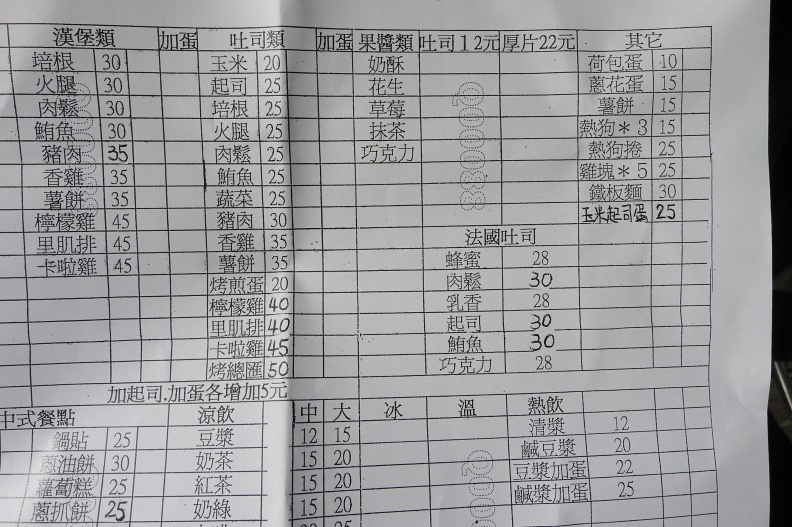 漢堡類 加蛋 吐司類 加蛋 果醬類 吐司12元 厚片22元 其它
培根 30 玉米 20 奶酥 荷包蛋 10
火腿 30 起司 25 花生 蔥花蛋 15
肉鬆 30 培根 25 草莓 薯餅 15
鮪魚 30 火腿 25 抹茶 熱狗*3 15
豬肉 35 肉鬆 25 巧克力 熱狗捲 25
香雞 35 鮪魚 25 雞塊*5 25
薯餅 35 蔬菜 25 鐵板麵 30
檸檬雞 45 豬肉 30 玉米起司蛋 25
里肌排 45 香雞 35 法國吐司
卡啦雞 45 薯餅 35 蜂蜜 28
烤煎蛋 20 肉鬆 30
檸檬雞 40 乳香 28
里肌排 40 起司 30
卡啦雞 45 鮪魚 30
烤總匯 50 巧克力 28
加起司.加蛋各增加5元
中式餐點 涼飲 中 大 冰 溫 熱飲
鍋貼 25 豆漿 12 15 清漿 12
蔥油餅 30 奶茶 15 20 鹹豆漿 20
蘿蔔糕 25 紅茶 15 20 豆漿加蛋 22
蔥抓餅 25 奶綠 15 20 鹹漿加蛋 25